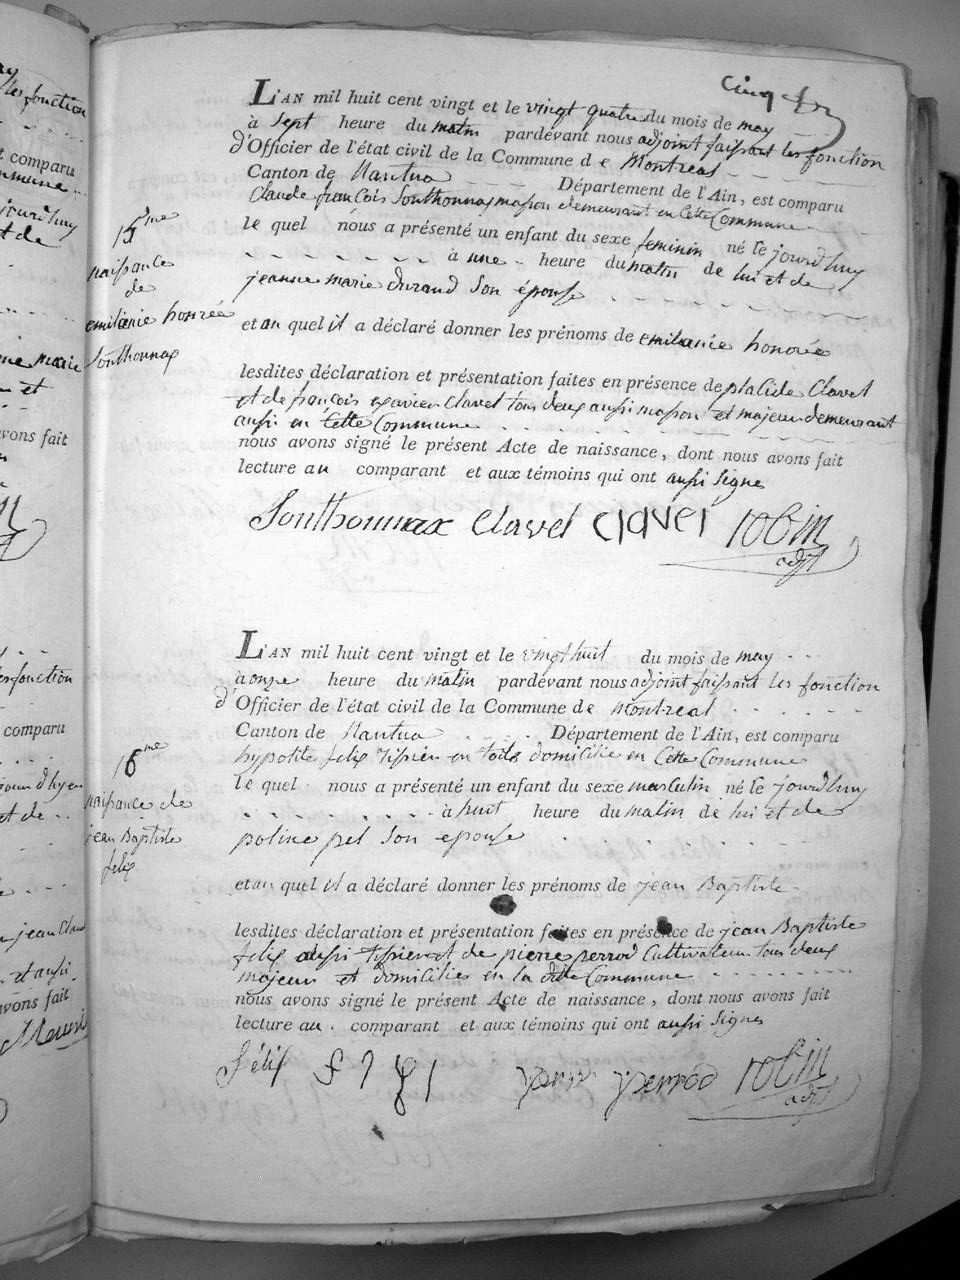 Cinq
L'AN mil huit cent vingt et le vingt quatre du mois de may
à sept heure du matin pardevant nous adjoint faissant les fonction
d'Officier de l'état civil de la Commune de Montreal
Canton de Nantua Département de l'Ain, est comparu
Claude françois Sonthonnax masson demeurant en Cette Commune
le quel nous a présenté un enfant du sexe feminin né le jourd'huy
à une heure du matin de lui et de
jeanne marie durand Son épouse
et au quel il a déclaré donner les prénoms de emiliénie honorée
lesdites déclaration et présentation faites en présence de placide Clavel
et de françois exavier Clavel tous deux aussi masson et majeur demeurant
aussi en Cette Commune
nous avons signé le présent Acte de naissance, dont nous avons fait
lecture au comparant et aux témoins qui ont aussi Signe
Sonthonnax Clavel Clavel robin
adjt
15me
naissance
de
emiliénie honorée
Sonthonnax
L'AN mil huit cent vingt et le vingt huit du mois de may
à onze heure du matin pardevant nous adjoint faissant les fonction
d'Officier de l'état civil de la Commune de Montreal
Canton de Nantua Département de l'Ain, est comparu
hypolite felix tissier en toile domicilié en Cette Commune
le quel nous a présenté un enfant du sexe masculin né le jourd'huy
à huit heure du matin de lui et de
poline pel Son épouse
et au quel il a déclaré donner les prénoms de jean Baptiste
lesdites déclaration et présentation faites en présence de jean Baptiste
felix aussi tissier et de pierre perrod Cultivateur tous deux
majeur et domiciliés en la dite Commune
nous avons signé le présent Acte de naissance, dont nous avons fait
lecture au comparant et aux témoins qui ont aussi Signe
Félix perrod robin
adjt
16me
naissance de
jean Baptiste
felix